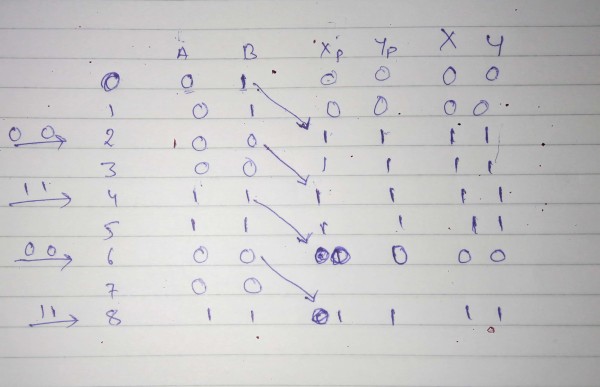 A B Xp Yp X Y
0 0 1 0 0 0 0
1 0 1 0 0 0 0
0 0 → 2 0 0 1 1 1 1
3 0 0 1 1 1 1
1 1 → 4 1 1 1 1 1 1
5 1 1 1 1 1 1
0 0 → 6 0 0 0 0 0 0
7 0 0
1 1 → 8 1 1 1 1 1 1